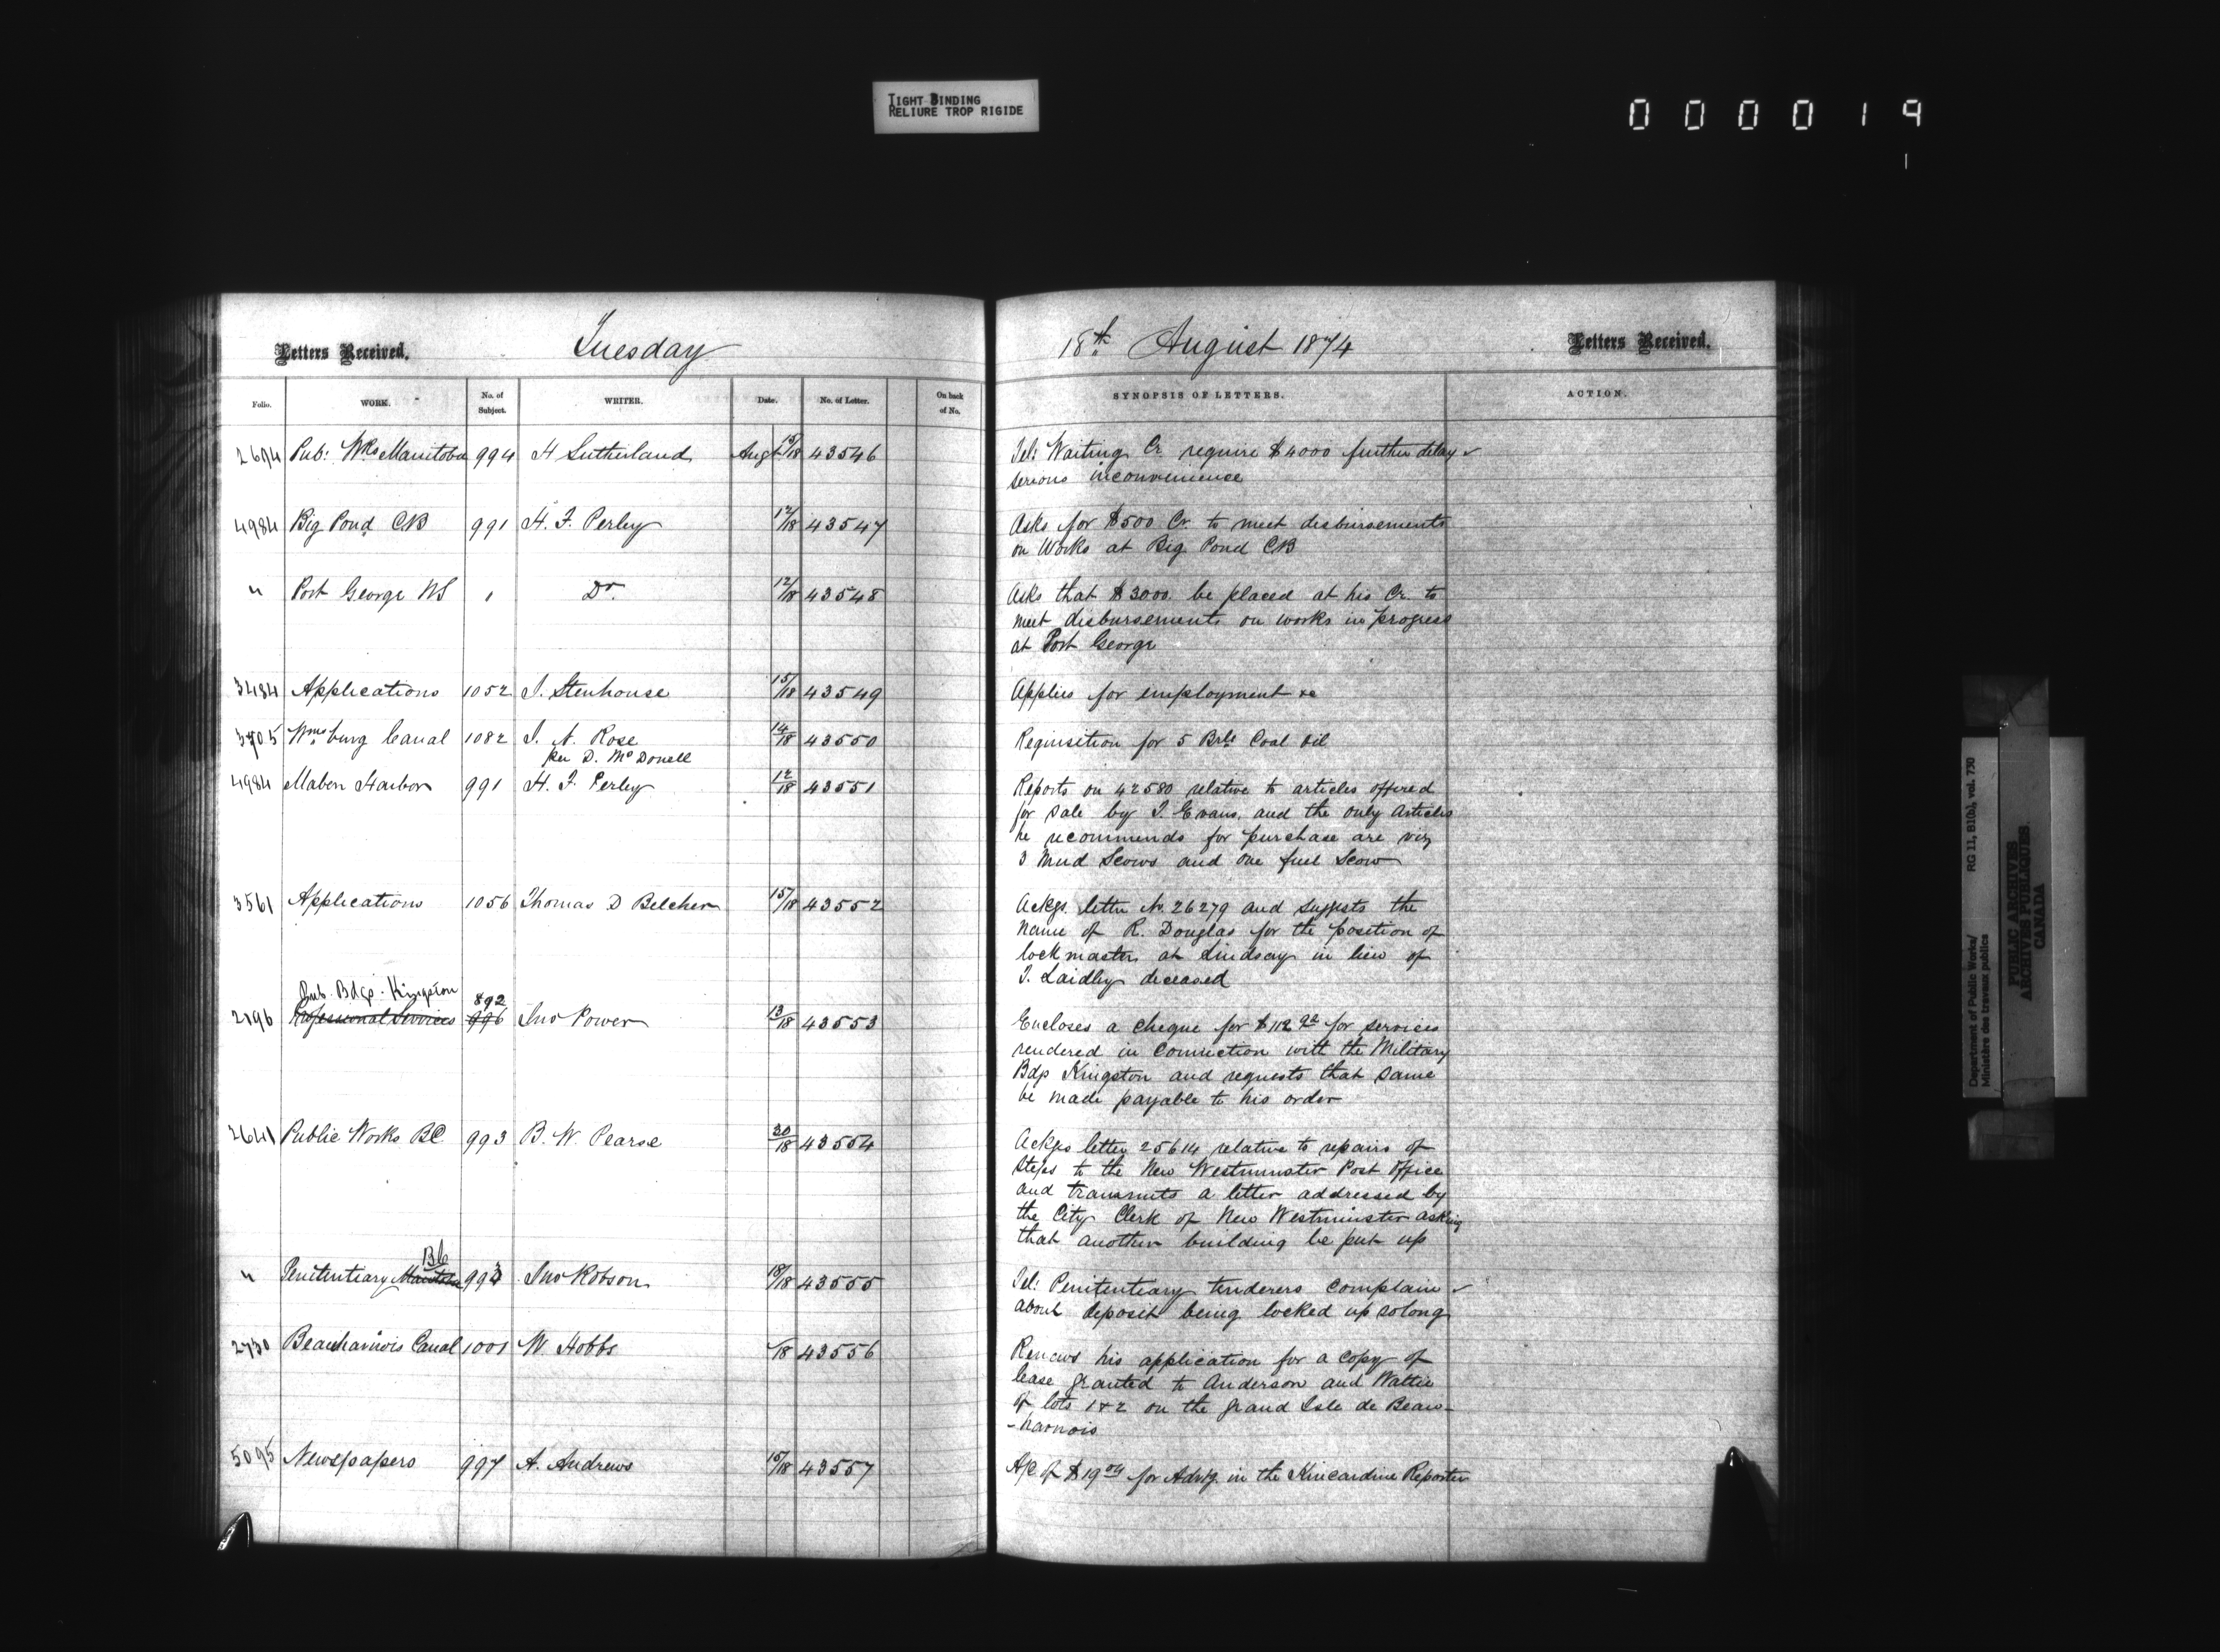 TIGHT BINDING
RELIURE TROP RIGIDE
0 0 0 0 1 9
1
Letters Received. Tuesday
Folio. WORK. No. of Subject. WRITER. Date. No. of Letter. On back of No.
2694 Pub: Wks Manitoba 994 H Sutherland Augt 15/18 43546
4984 Big Pond CB 991 H. F. Perley 12/18 43547
" Port George NS 1 Do. 12/18 43548
3484 Applications 1052 J. Stenhouse 15/18 43549
3705 Wmsburg Canal 1082 I. N. Rose 14/18 43550
per D. McDonell
4984 Mabou Harbor 991 H. F. Perley 12/18 43551
3561 Applications 1056 Thomas D Belcher 15/18 43552
Pub. Bdgs. Kingston 892
2196 Professional Services 996 Jno Power 13/18 43553
2641 Public Works BC 993 B. W. Pearse 30/18 43554
BC
" Penitentiary Manitoba 993 Jno Robson 18/18 43555
2730 Beauharnois Canal 1001 W Hobbs /18 43556
5095 Newspapers 997 A. Andrews 15/18 43557
18th August 1874 Letters Received.
SYNOPSIS OF LETTERS. ACTION.
Tel: Waiting Cr. require $4000 further delay
serious inconvenience
Asks for $500 Cr. to meet disbursements
on Works at Big Pond CB
Asks that $3000 be placed at his Cr. to
meet disbursements on works in progress
at Port George
Applies for employment &c
Requisition for 5 Brls Coal Oil
Reports on 42580 relative to articles offered
for sale by J. Evans, and the only articles
he recommends for purchase are viz
3 Mud Scows and one fuel Scow
Ackgs. letter No. 26279 and suggests the
name of R. Douglas for the position of
lockmaster at Lindsay in lieu of
J. Laidley deceased
Encloses a cheque for $112 92 for services
rendered in connection with the Military
Bdgs Kingston and requests that same
be made payable to his order
Ackgs letter 25614 relative to repairs of
steps to the New Westminster Post Office
and transmits a letter addressed by
the City Clerk of New Westminster asking
that another building be put up
Tel: Penitentiary tenderers complain
about deposit being locked up so long
Renews his application for a copy of
lease granted to Anderson and Wattie
of lots 1 & 2 on the grand Isle de Beau-
-harnois
A/c of $19 04 for Advtg. in the Kincardine Reporter
Department of Public Works/ RG 11, B1(b), vol. 730
Ministère des travaux publics
PUBLIC ARCHIVES
ARCHIVES PUBLIQUES
CANADA